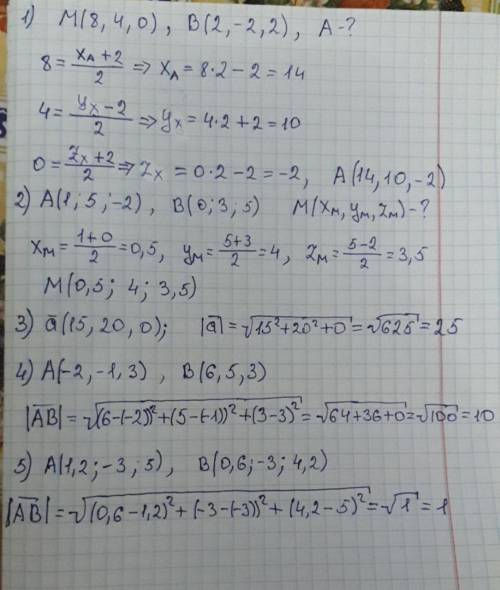 1) M(8, 4, 0), B(2, -2, 2), A-?
8 = (x_A + 2)/2 ⇒ x_A = 8·2 - 2 = 14
4 = (y_x - 2)/2 ⇒ y_x = 4·2 + 2 = 10
0 = (z_x + 2)/2 ⇒ z_x = 0·2 - 2 = -2, A(14, 10, -2)
2) A(1; 5; -2), B(0; 3; 5) M(x_M, y_M, z_M) - ?
x_M = (1+0)/2 = 0,5, y_M = (5+3)/2 = 4, z_M = (5-2)/2 = 3,5
M(0,5; 4; 3,5)
3) a̅(15, 20, 0); |a̅| = √(15² + 20² + 0) = √625 = 25
4) A(-2, -1, 3), B(6, 5, 3)
|A̅B̅| = √((6-(-2))² + (5-(-1))² + (3-3)²) = √(64+36+0) = √100 = 10
5) A(1,2; -3; 5), B(0,6; -3; 4,2)
|A̅B̅| = √((0,6-1,2)² + (-3-(-3))² + (4,2-5)²) = √1 = 1